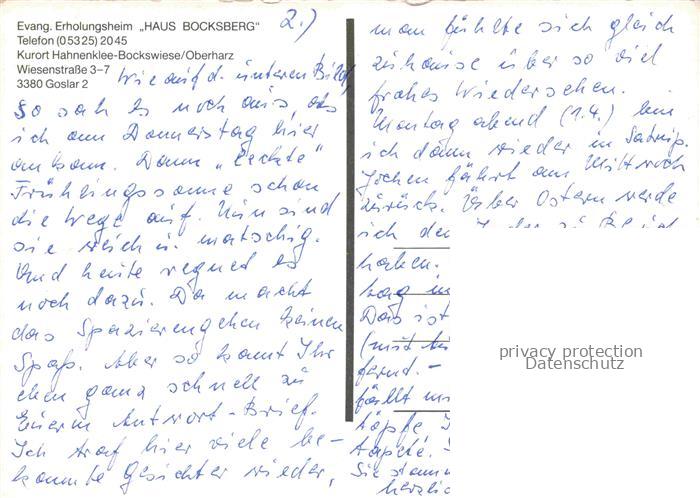 Evang. Erholungsheim „HAUS BOCKSBERG"
Telefon (05325) 2045
Kurort Hahnenklee-Bockswiese/Oberharz
Wiesenstraße 3–7
3380 Goslar 2
2.)
Wie auf d. unteren Bild
So sah es noch aus, als
ich am Donnerstag hier
ankam. Dann „leckte"
Frühlingssonne schon
die Wege auf. Nun sind
sie weich u. matschig.
Und heute regnet es
noch dazu. Da macht
das Spazierengehen keinen
Spaß. Aber so kommt Ihr
eben ganz schnell zu
Eurem Antwort-Brief.
Ich traf hier viele be-
kannte Gesichter wieder,
man fühlte sich gleich
zuhause über so viel
frohes Wiedersehen.
Montag abend (1.4.) bin
ich dann wieder in
Jochen fährt am Mittwoch
zurück. Über Ostern werde
ich
haben.
Das ist
(mit
fernt. –
fällt
Töpfe
Tapete.
Sie
herzlic
privacy protection
Datenschutz